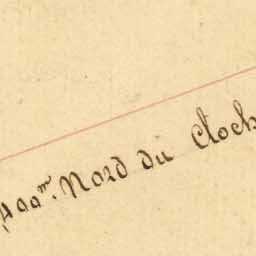 400m. Nord du Cloch